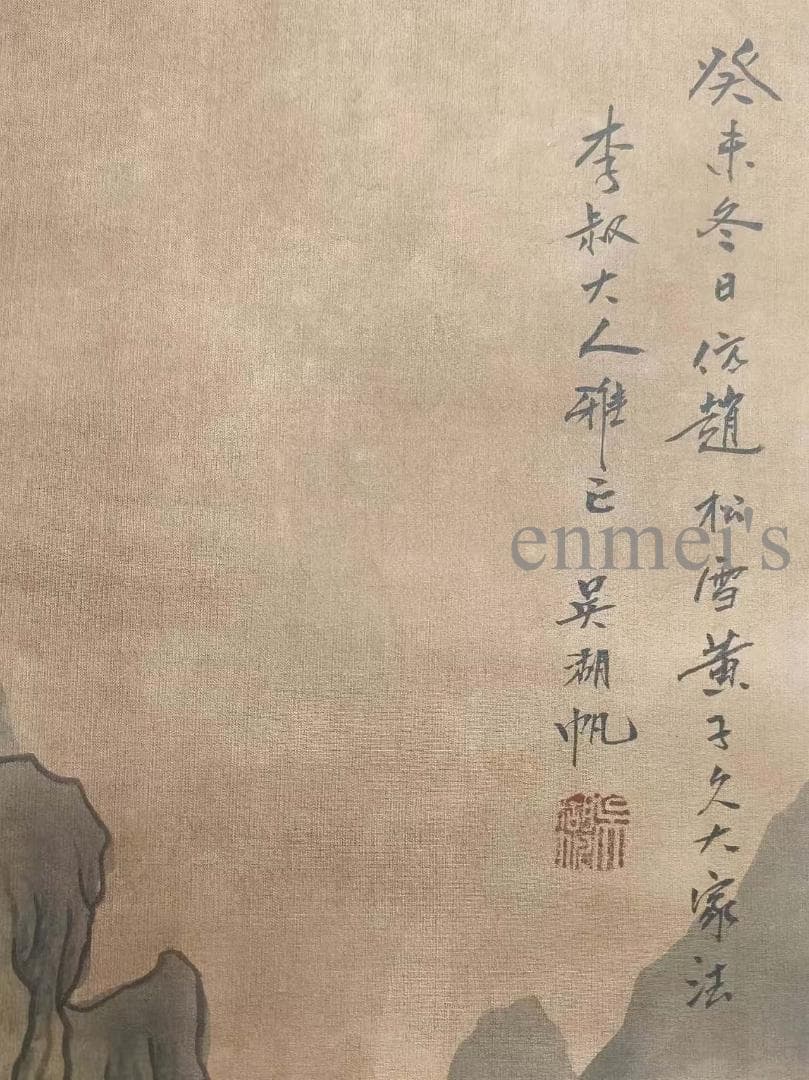 癸未冬日仿趙松雪黄子久大家法
李叔大人雅正
吴湖帆
enmei's